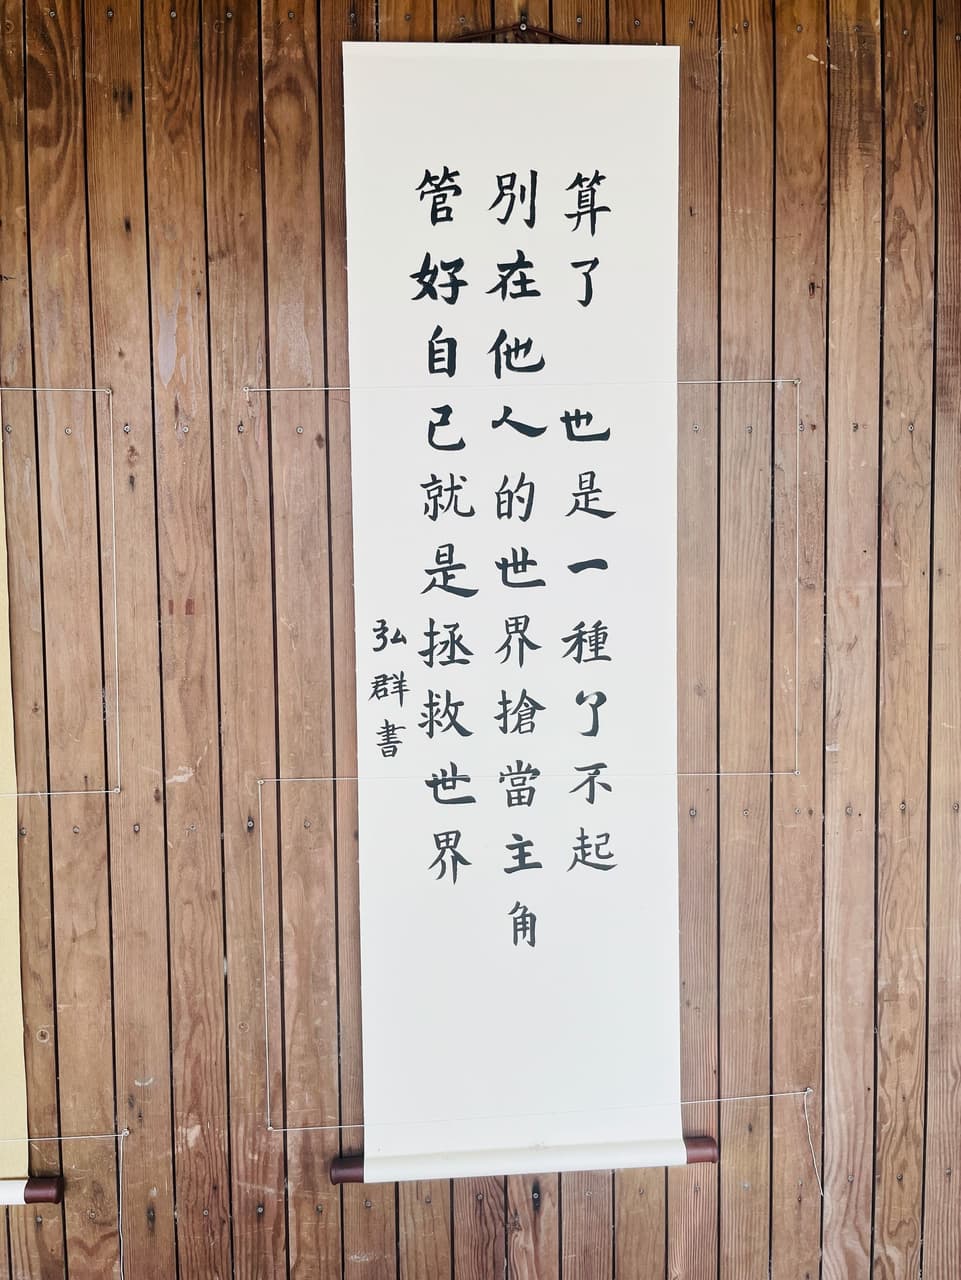 算了 也是一種了不起
別在他人的世界搶當主角
管好自己就是拯救世界
弘群書